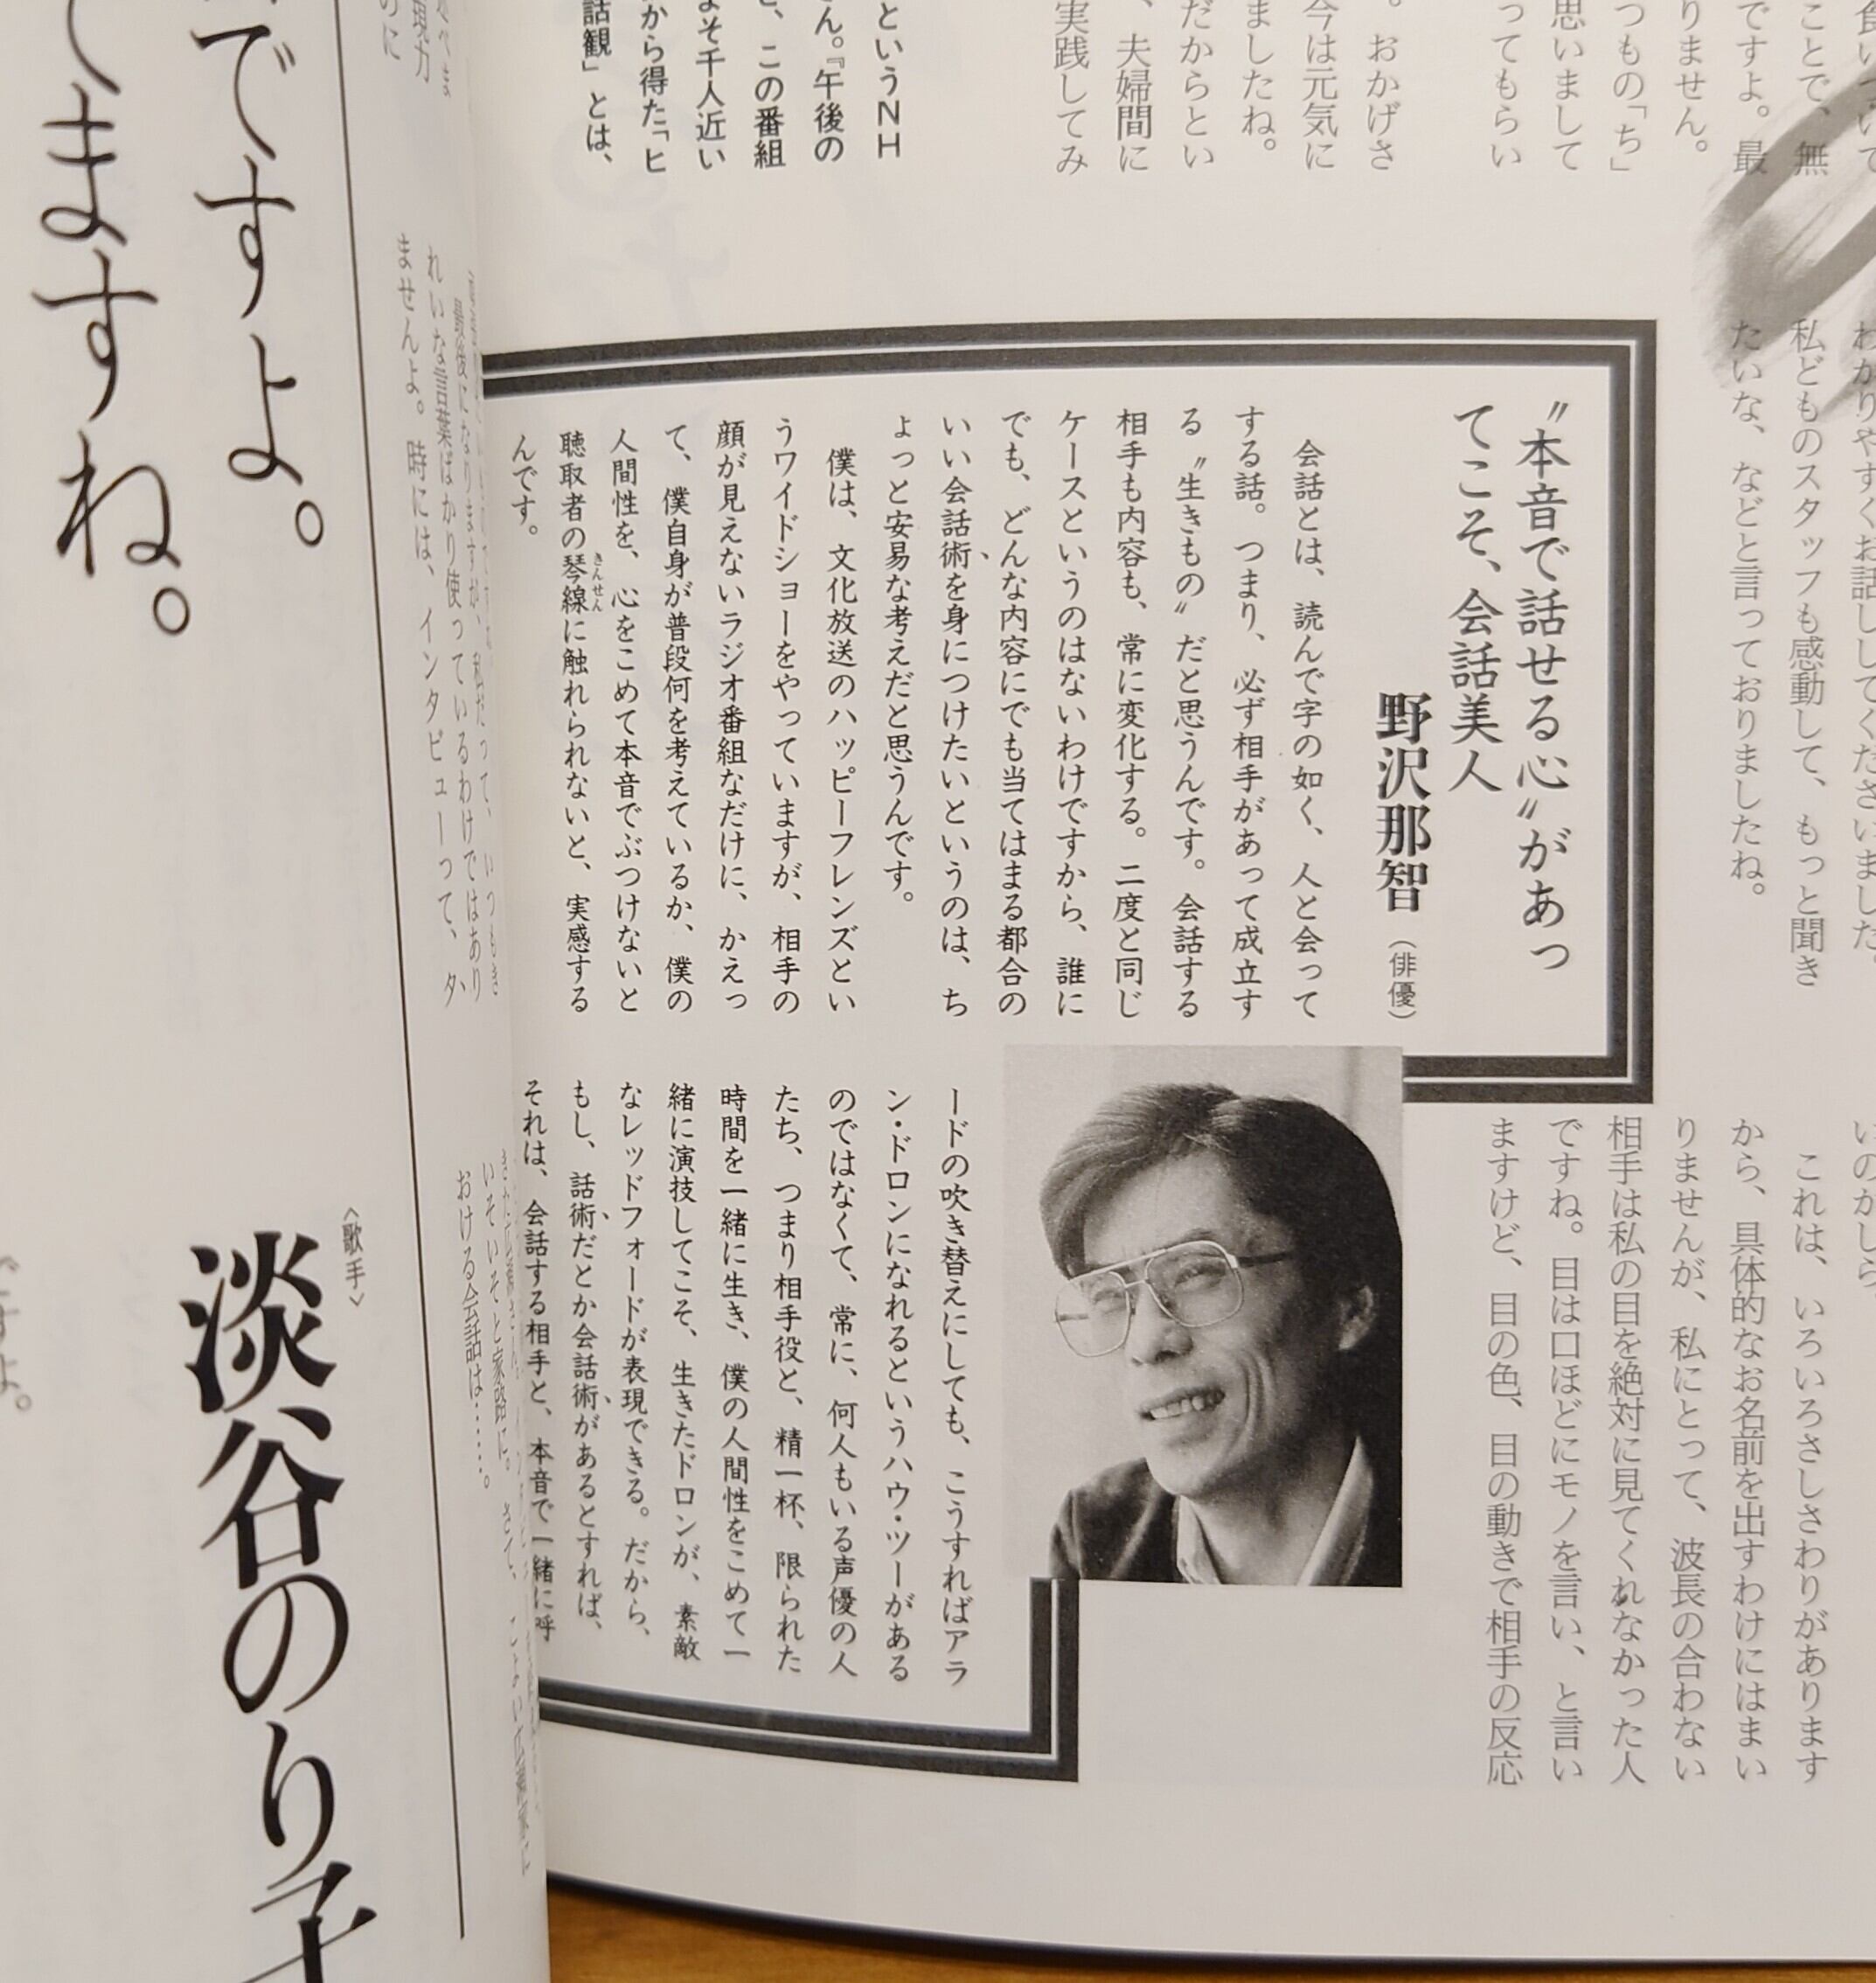 ことで、無
ですよ。最
りません。
つもの「ち」
思いまして
ってもらい
。おかげさ
今は元気に
ましたね。
だからとい
、夫婦間に
実践してみ
というNH
ん。『午後の
、この番組
よそ千人近い
から得た「ヒ
話観」とは、
わかりやすくお話ししてくださいました。
私どものスタッフも感動して、もっと聞き
たいな、などと言っておりましたね。
〝本音で話せる心〟があっ
てこそ、会話美人
野沢那智（俳優）
会話とは、読んで字の如く、人と会って
する話。つまり、必ず相手があって成立す
る〝生きもの〟だと思うんです。会話する
相手も内容も、常に変化する。二度と同じ
ケースというのはないわけですから、誰に
でも、どんな内容にでも当てはまる都合の
いい会話術を身につけたいというのは、ち
ょっと安易な考えだと思うんです。
僕は、文化放送のハッピーフレンズとい
うワイドショーをやっていますが、相手の
顔が見えないラジオ番組なだけに、かえっ
て、僕自身が普段何を考えているか、僕の
人間性を、心をこめて本音でぶつけないと
聴取者の琴線に触れられないと、実感する
きんせん
んです。
ードの吹き替えにしても、こうすればアラ
ン・ドロンになれるというハウ・ツーがある
のではなくて、常に、何人もいる声優の人
たち、つまり相手役と、精一杯、限られた
時間を一緒に生き、僕の人間性をこめて一
緒に演技してこそ、生きたドロンが、素敵
なレッドフォードが表現できる。だから、
もし、話術だとか会話術があるとすれば、
それは、会話する相手と、本音で一緒に呼
いのかしら
これは、いろいろさしさわりがあります
から、具体的なお名前を出すわけにはまい
りませんが、私にとって、波長の合わない
相手は私の目を絶対に見てくれなかった人
ですね。目は口ほどにモノを言い、と言い
ますけど、目の色、目の動きで相手の反応
最後になりますが、私だって、いつもき
れいな言葉ばかり使っているわけではあり
ませんよ。時には、インタビューって、タ
いそいそと家路に。さて、こよい広瀬家に
おける会話は……。
ですよ。
てますね。
〈歌手〉
淡谷のり子